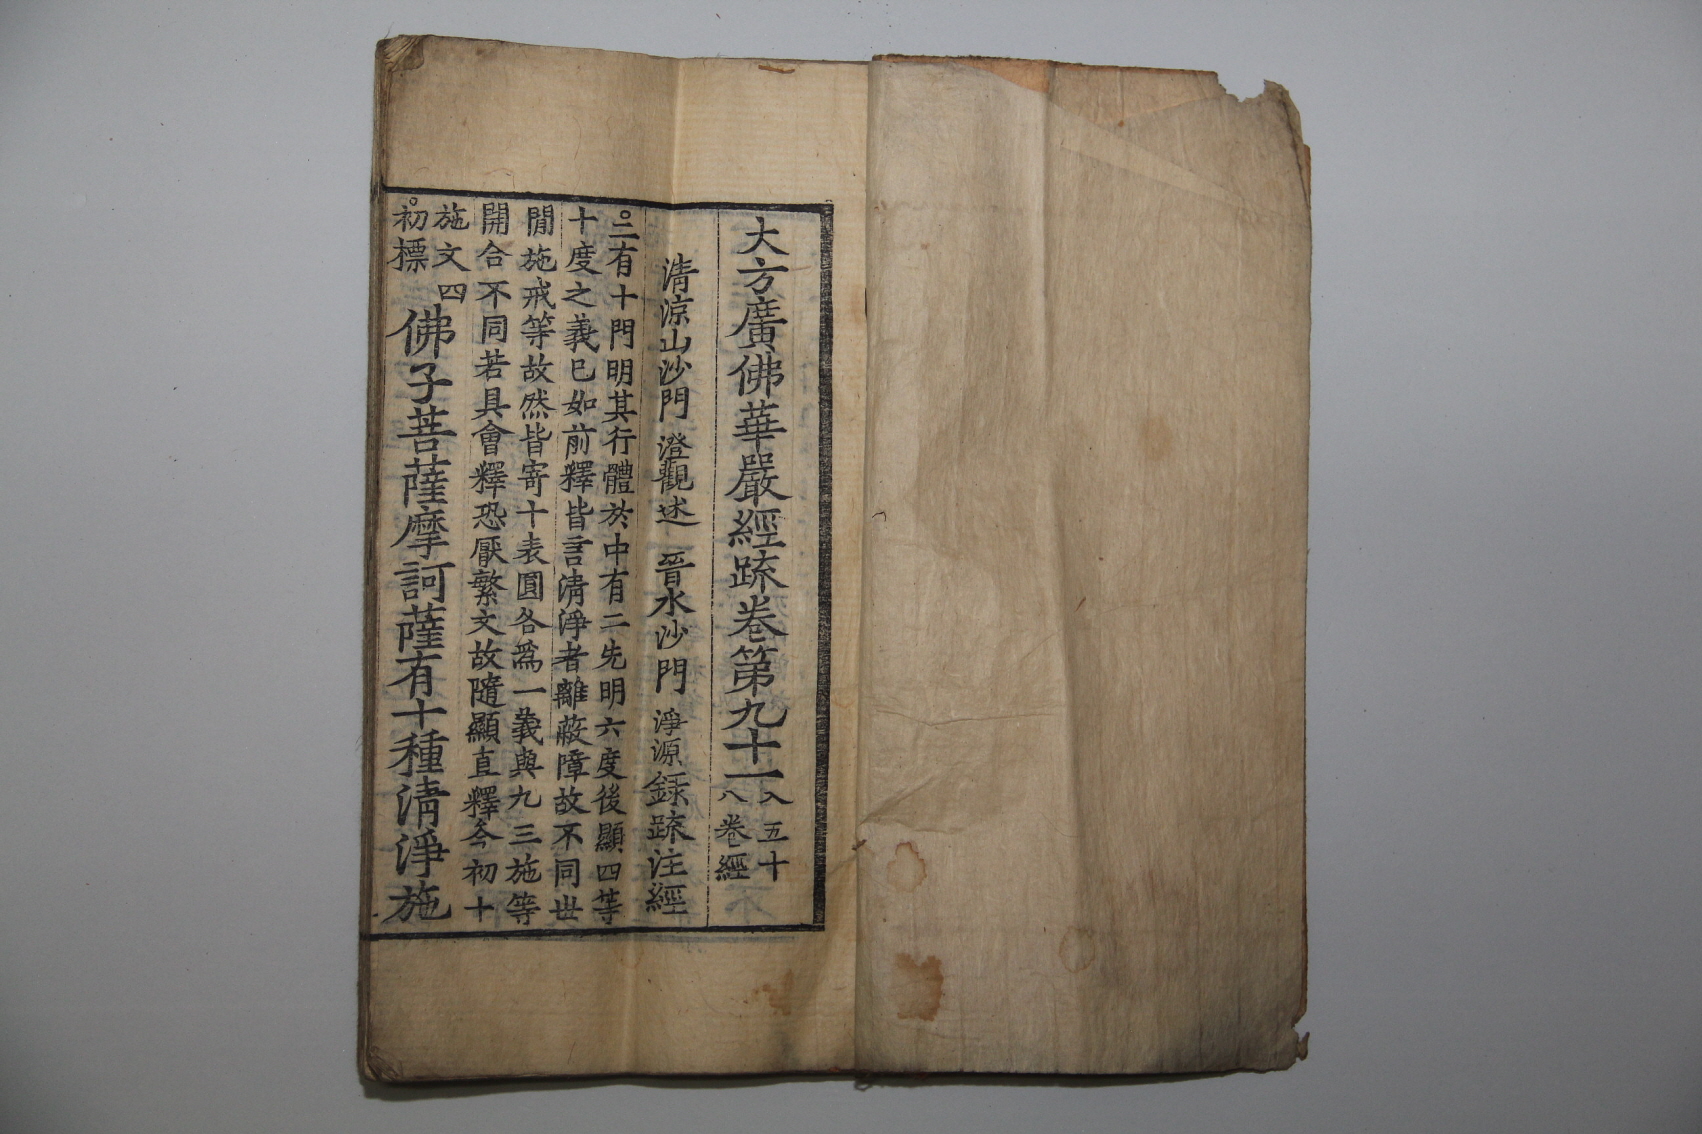 大方廣佛華嚴經䟽卷第九十一 入五十八卷經
清涼山沙門 澄觀述 晉水沙門 淨源録䟽注經
二有十門明其行體於中有二先明六度後顯四等
十度之義已如前釋皆言清淨者離蔽障故不同世
間施戒等故然皆寄十表圓各爲一義與九三施等
開合不同若具會釋恐厭繁文故隨顯直釋今初十
施文四
初標 佛子菩薩摩訶薩有十種清淨施